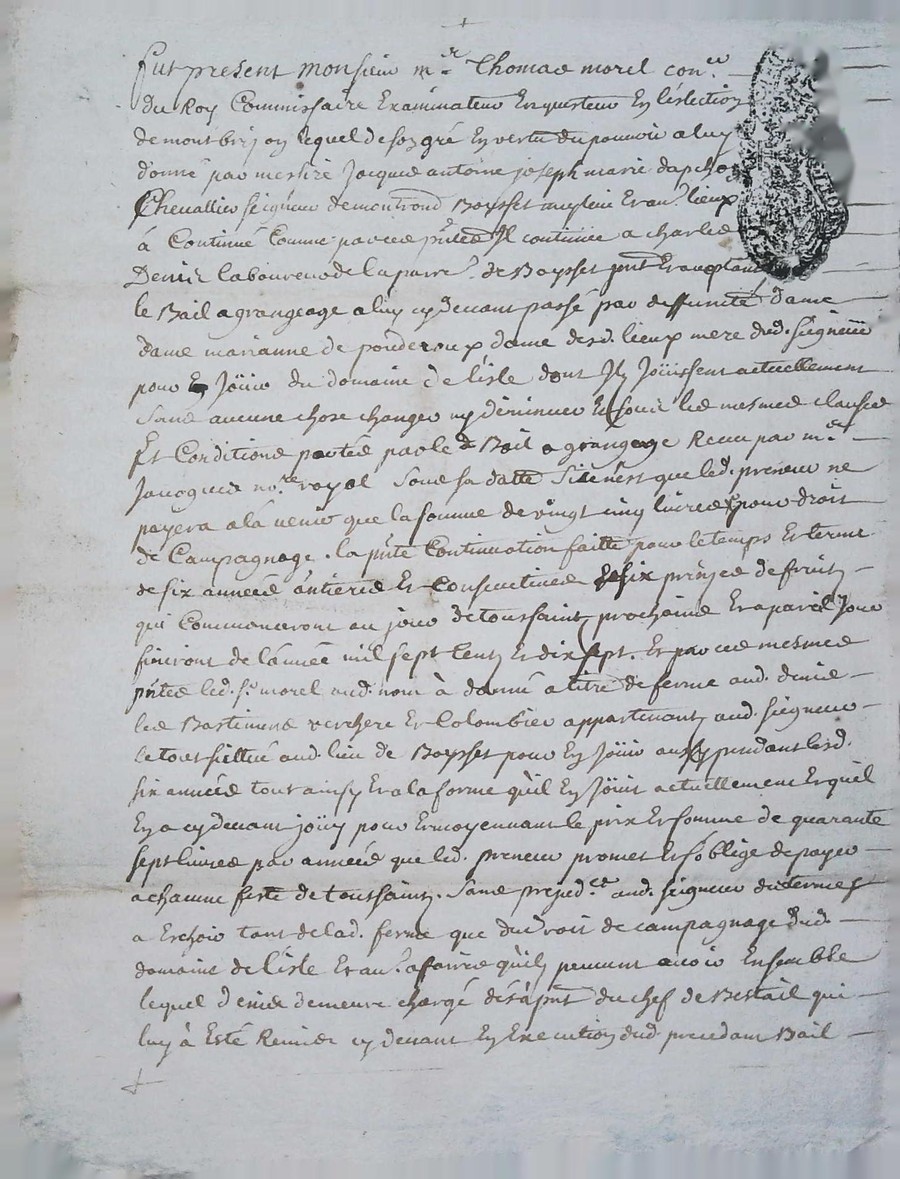 fut present monsieur mr. Thomas morel coner.
du Roy Commissaire Examinateur Enquesteur En l'eslection
de montbrison lequel de son gré En vertu du pouvoir a luy
donné par messire Jacque antoine joseph marie dapchon
Chevallier seigneur de montrond Boysset meylieu Et au. lieux
à Continué Comme par ces pntes Il continüe a charles
Denis laboureur de la parre. de Boysset pnt Et acceptant
le Bail a grangeage a luy cy devant passé par deffunte dame
dame marianne de ponderoux dame desd. lieux mere dud. seigneur
pour En Joüir du domaine de l'isle dont Ils Joüissent actuellement
sans aucune chose changer ny diminuer Et sous les mesmes clauses
Et Conditions portées par led. Bail a grangeage Receu par me.
Jacquins nore. royal sous sa datte si ce n'est que led. preneur ne
payera a la venir que la somme de vingt cinq livres pour droit
de Campagnage. la pnte Continuation faitte pour le temps Et terme
de six années Entieres Et Consecutives Et six prises de fruits
qui Commenceront au jour de toussaints prochaine Et a pareil Jour
finiront de l'année mil sept Cents Et dix sept. Et par ces mesmes
pntes led. sr. morel aud. nom à donné a titre de ferme aud. denis
les Bastiments verchere Et Colombier appartenants aud. seigneur
le tout sittué aud. lieu de Boysset pour En Joüir aussy pendant lesd.
six années tout ainsy Et a la forme qu'il En Joüit actuellement Et quil
En a cy devant joüy pour Et moyennant le prix Et somme de quarante
sept livres par années que led. preneur promet Et s'oblige de payer
a chacune feste de toussaints. sans prejudce. aud. seigneur des termes
a Eschoir tant de lad. ferme que du droit de campagnage dud.
domaine de l'isle Et au. affaires qu'ils peuvent avoir Ensemble
lequel denis demeure chargé dès àpnt du chef de Bestail qui
luy à Esté Remis cy devant En Execution dud. precedant Bail